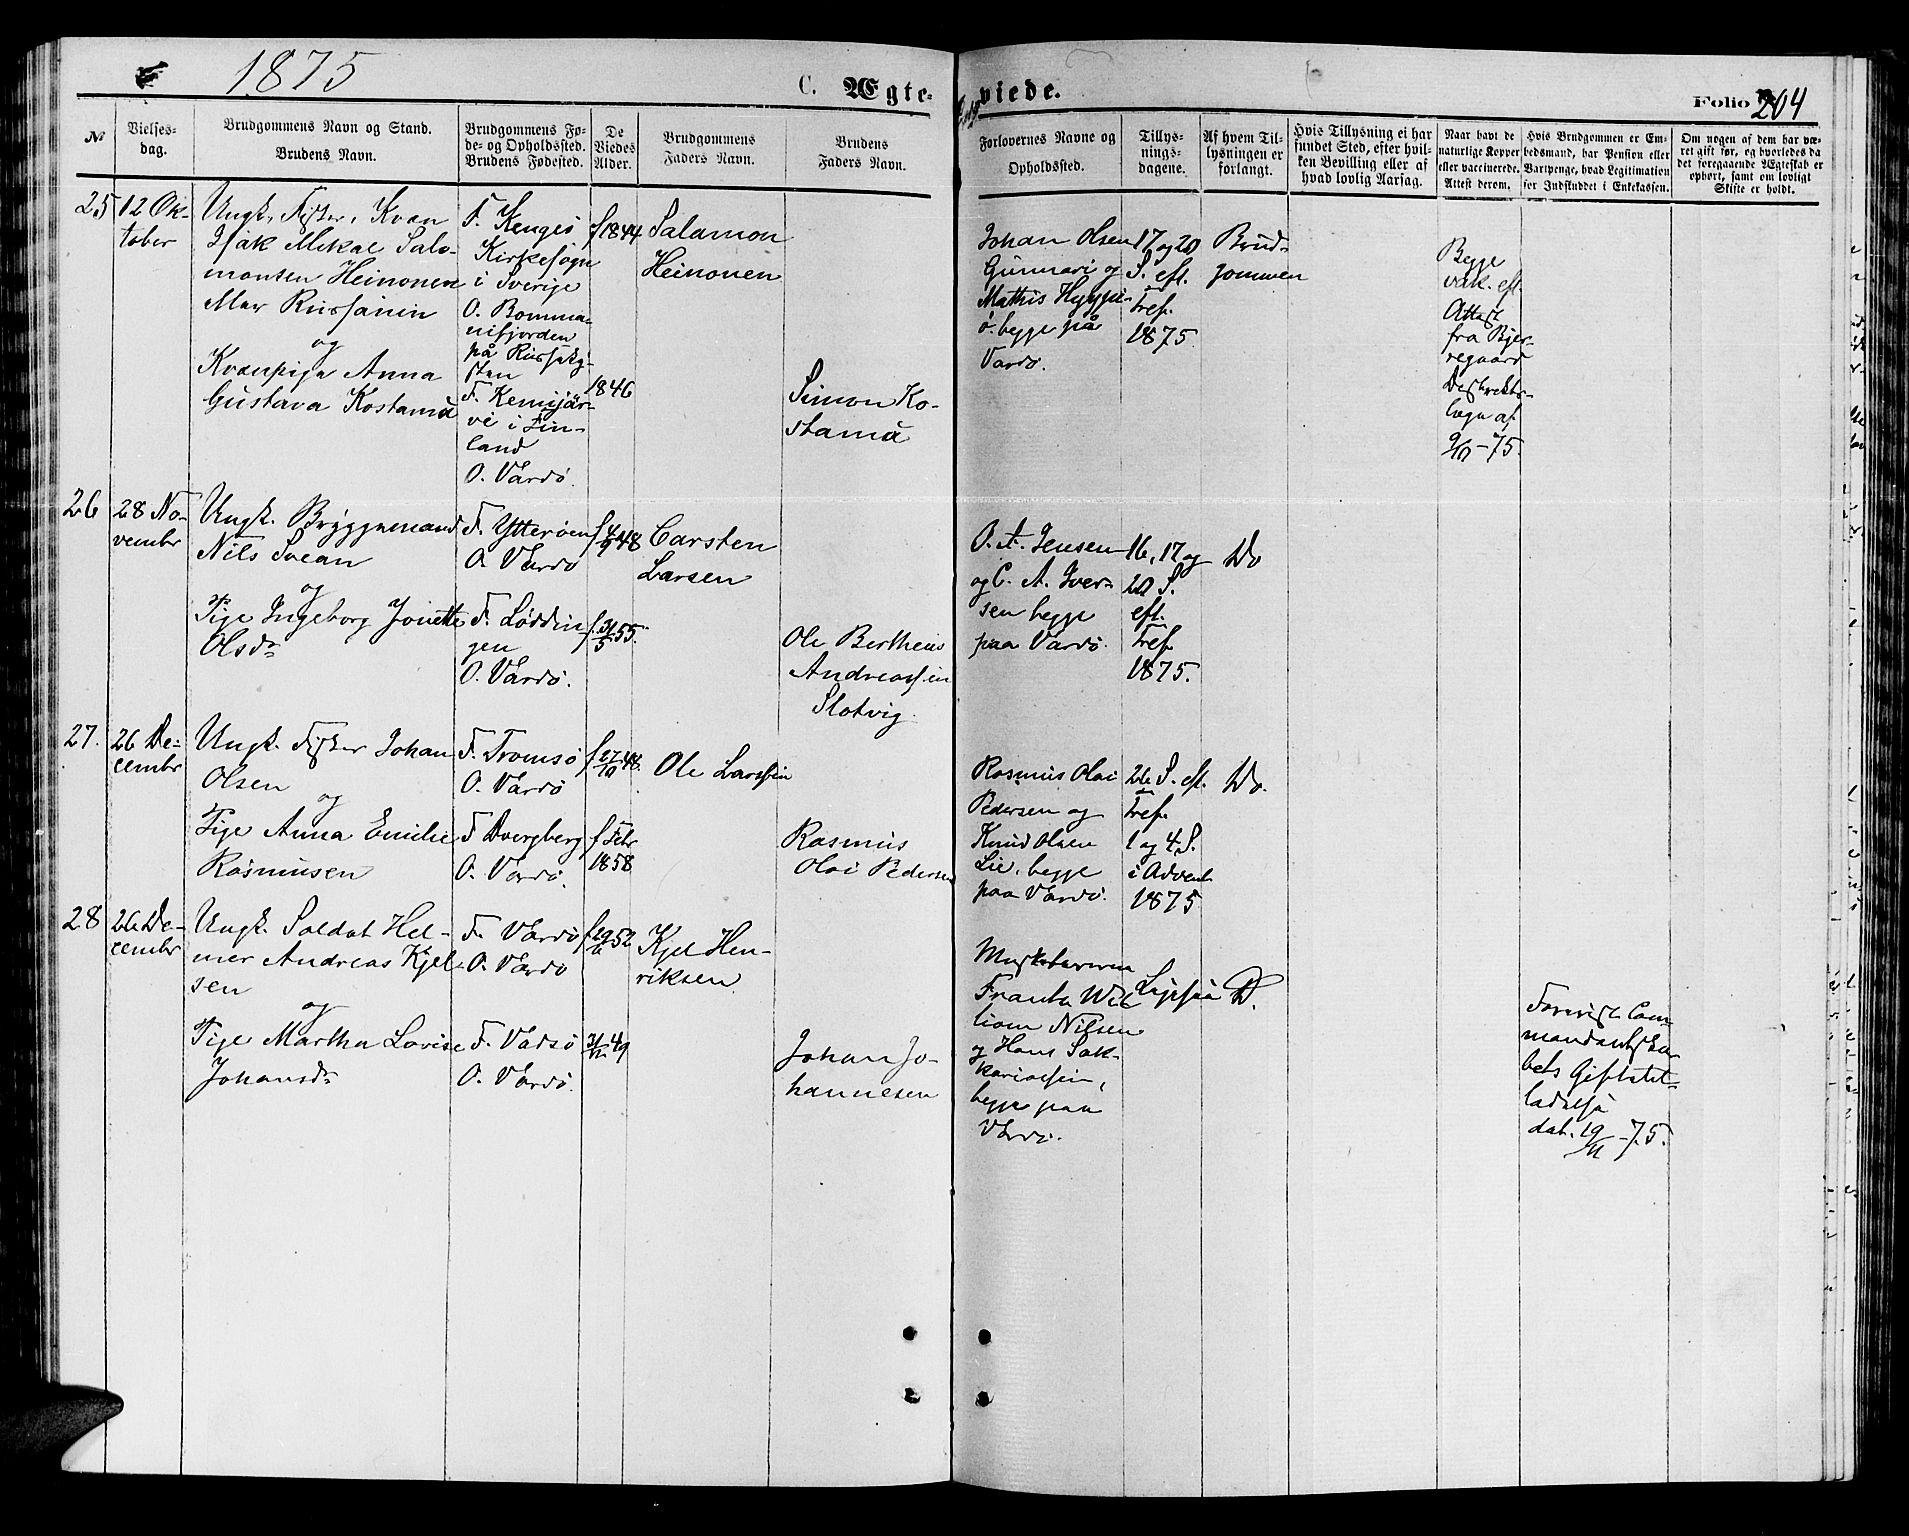 1875
C. Ægte-
viede.
Folio 204
№
Vielses-
dag.
Brudgommens Navn og Stand.
Brudens Navn.
Brudgommens Fø-
de- og Opholdsted.
Brudens Fødested.
De
Viedes
Alder.
Brudgommens
Faders Navn.
Brudens
Faders Navn.
Forlovernes Navne og
Opholdsted.
Tillys-
nings-
dagene.
Af hvem Til-
lysningen er
forlangt.
Hvis Tillysning ei har
fundet Sted, efter hvil-
ken Bevilling eller af
hvad lovlig Aarsag.
Naar havt de
naturlige Kopper
eller vaccinerede.
Attest derom.
Hvis Brudgommen er Em-
bedsmand, har Pension eller
Vartpenge, hvad Legitimation
for Indskuddet i Enkekassen.
Om nogen af dem har væ-
ret gift før, og hvorledes da
det foregaaende Ægteskab er
ophørt, samt om lovligt
Skifte er holdt.
25
12 Ok-
tober
Ungk. Fisker, Kvæn
Isak Mikal Salo-
monsen Heinonen
og
Kvænpige Anna
Gustava Kostamo
F. Kengis
Kirkesogn
i Sverige
O. Bomma-
nifjorden
på Russeky-
sten
F. Kemijär-
vi i Fin-
land
O. Vardö.
f 1844
1846
Salamon
Heinonen
Simon Ko-
stamo
Johan Olsen
og
Mathis
begge på
Vardö.
17 og 20
S. eft.
Tref.
1875
Brud-
gommen
Begge
vak. eft.
Attest
fra Bjer-
regaard
Distrikts-
læge af
9/10 - 75.
26
28 No-
vembr
Ungk. Bryggemand
Nils Svean
og
Pige Ingeborg Jonette
Olsdr
F. Ytterøen
O. Vardö
F. Løddin
gen
O. Vardö.
f 4/9 48
f. 31/5 55.
Carsten
Larsen
Ole Bertheus
Andreassen
Slotvig.
O. A. Jensen
og C. A. Iver-
sen begge
paa Vardö.
16, 17 og
20 S.
eft.
Tref.
1875.
Do
27.
26 De-
cembr
Ungk. Fisker Johan
Olsen
og
Pige Anna Emilie
Rasmusen
F. Tromsö
O. Vardö
F Dvergberg
O. Vardö.
f 27/10 48.
f Febr
1858
Ole Larssen
Rasmus
Olai Pedersen
Rasmus Olai
Pedersen og
Knud Olsen
Lie, begge
paa Vardö.
26 S. eft.
Tref.
1 og 4 S.
i Advent
1875
Do.
28
26 De-
cembr
Ungk. Soldat Hel-
mer Andreas Kjel-
sen
og
Pige Martha Lovise
Johansdr
F. Vardö
O. Vardö
F. Vadsö
O. Vardö.
f 29/6 52
31/11 49
Kjel Hen-
riksen
Johan Jo-
hannesen
Frants Wil
liam Nilsen
og Hans Sak-
kariassen,
begge paa
Vardö.
Ligesaa
D.
Forevist Com-
mandantska-
bets Giftetil-
ladelse
dat. 19/11 - 75.